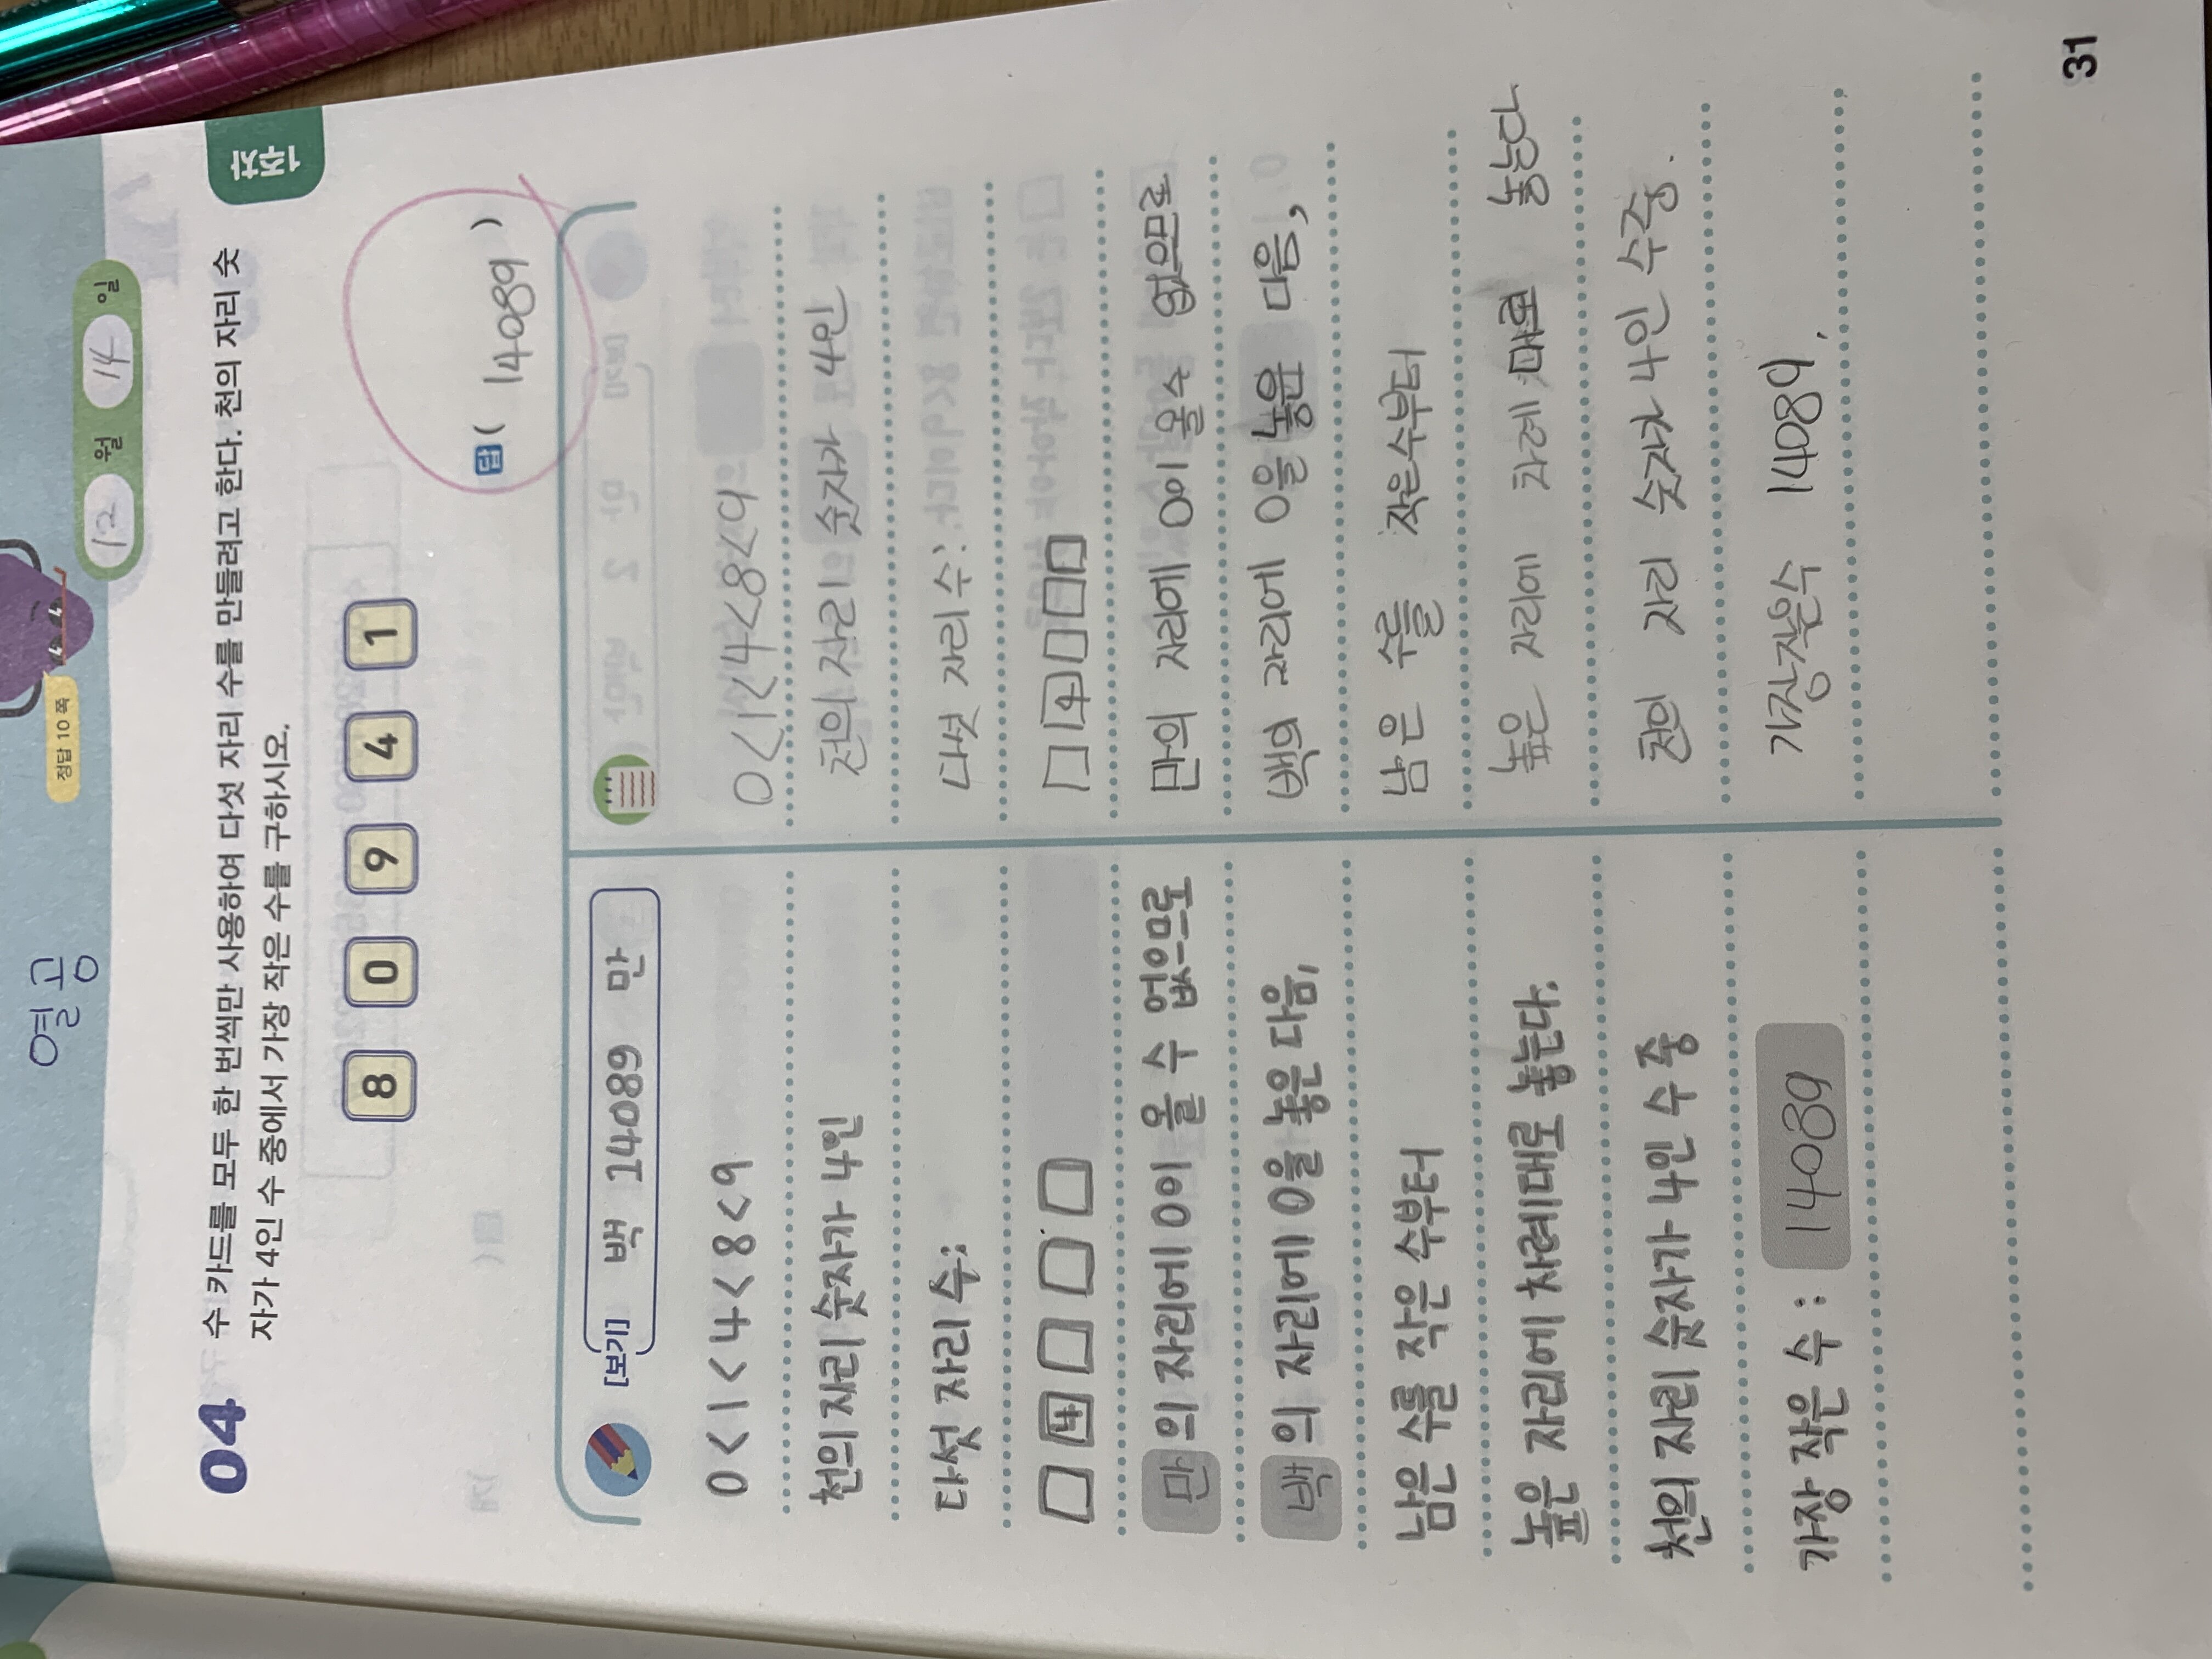 열공
정답 10쪽
12 월 14 일
04 수 카드를 모두 한 번씩만 사용하여 다섯 자리 수를 만들려고 한다. 천의 자리 숫
자가 4인 수 중에서 가장 작은 수를 구하시오.
8 0 9 4 1
답 ( 14089 )
[보기] 백 14089 만
0<1<4<8<9
천의 자리 숫자가 4인
다섯 자리 수:
□ 4 □ □ □
만의 자리에 0이 올 수 없으므로
백의 자리에 0을 놓은 다음,
남은 수를 작은 수부터
높은 자리에 차례대로 놓는다.
천의 자리 숫자가 4인 수 중
가장 작은 수: 14089
0<1<4<8<9
천의 자리 숫자가 4인
다섯 자리 수:
□ 4 □ □ □
만의 자리에 0이 올수 없으므로
백의 자리에 0을 놓은 다음,
남은 수를 작은수부터
높은 자리에 차례 대로 놓는다
천의 자리 숫자가 4인 수중.
가장작은수 14089.
31